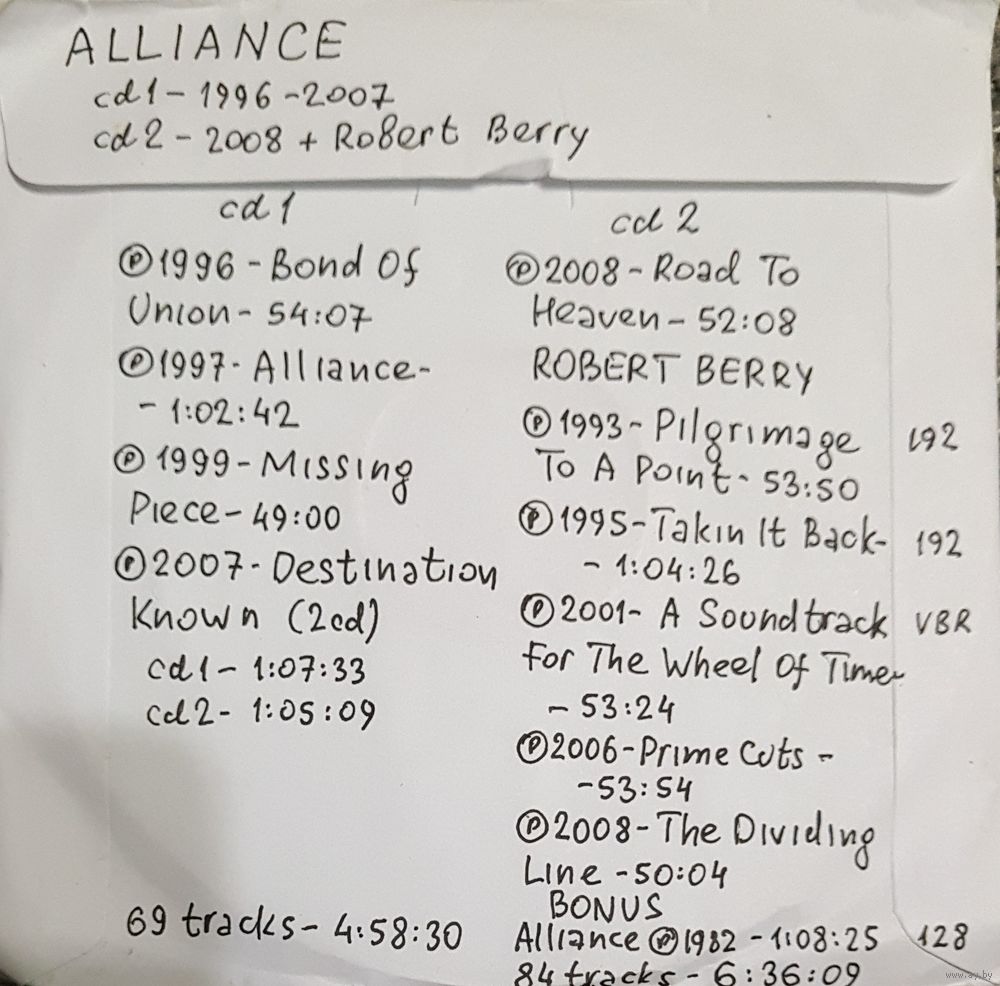 ALLIANCE
cd1 - 1996 - 2007
cd2 - 2008 + Robert Berry
cd 1
Ⓟ1996 - Bond Of
Union - 54:07
Ⓟ1997 - Alliance -
- 1:02:42
Ⓟ 1999 - Missing
Piece - 49:00
Ⓟ2007 - Destination
Known (2cd)
cd1 - 1:07:33
cd2 - 1:05:09
69 tracks - 4:58:30
cd 2
Ⓟ2008 - Road To
Heaven - 52:08
ROBERT BERRY
Ⓟ 1993 - Pilgrimage 192
To A Point - 53:50
Ⓟ 1995 - Takin It Back - 192
- 1:04:26
Ⓟ 2001 - A Soundtrack VBR
For The Wheel Of Time -
- 53:24
Ⓟ2006 - Prime Cuts -
- 53:54
Ⓟ2008 - The Dividing
Line - 50:04
BONUS
Alliance Ⓟ1982 - 1:08:25 128
84 tracks - 6:36:09
www.ay.by